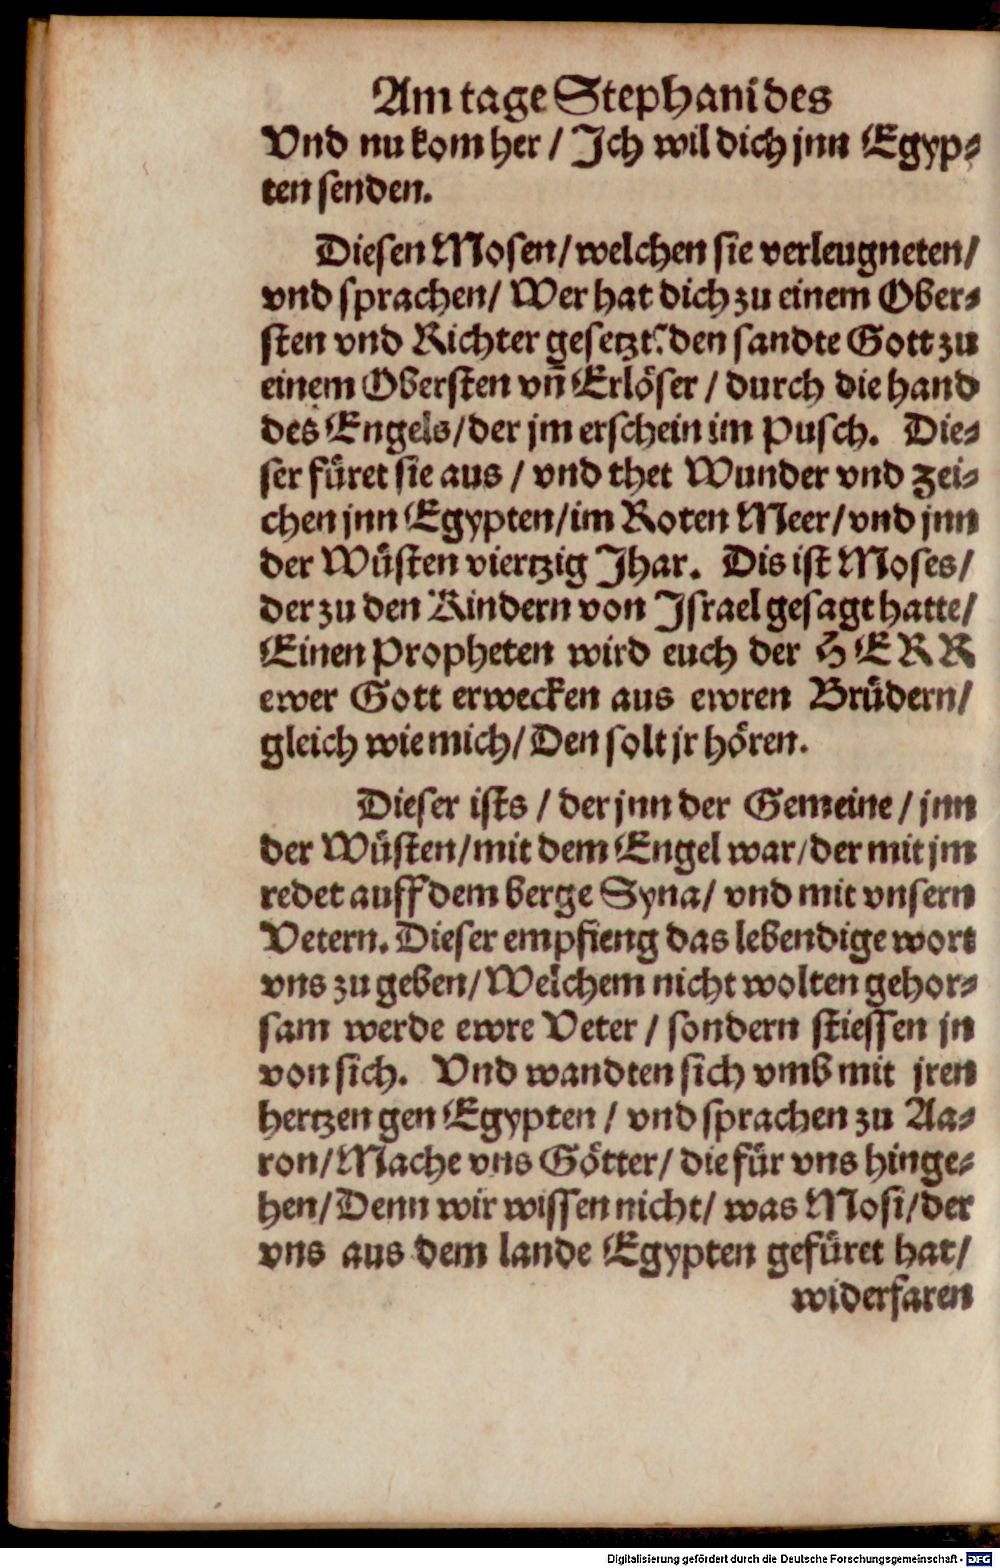 Am tage Stephani des
Vnd nu kom her / Ich wil dich jnn Egyp⸗
ten senden.
Diesen Mosen / welchen sie verleugneten /
vnd sprachen / Wer hat dich zu einem Ober⸗
sten vnd Richter gesetzt? den sandte Gott zu
einem Obersten vn̄ Erlöser / durch die hand
des Engels / der jm erschein im Pusch. Die⸗
ser füret sie aus / vnd thet Wunder vnd zei⸗
chen jnn Egypten / im Roten Meer / vnd jnn
der Wüsten viertzig Jhar. Dis ist Moses /
der zu den Kindern von Israel gesagt hatte /
Einen Propheten wird euch der HERR
ewer Gott erwecken aus ewren Brüdern /
gleich wie mich / Den solt jr hören.
Dieser ists / der jnn der Gemeine / jnn
der Wüsten / mit dem Engel war / der mit jm
redet auff dem berge Syna / vnd mit vnsern
Vetern. Dieser empfieng das lebendige wort
vns zu geben / Welchem nicht wolten gehor⸗
sam werde ewre Veter / sondern stiessen jn
von sich. Vnd wandten sich vmb mit jren
hertzen gen Egypten / vnd sprachen zu Aa⸗
ron / Mache vns Götter / die für vns hinge⸗
hen / Denn wir wissen nicht / was Mosi / der
vns aus dem lande Egypten gefüret hat /
widerfaren
Digitalisierung gefördert durch die Deutsche Forschungsgemeinschaft - DFG